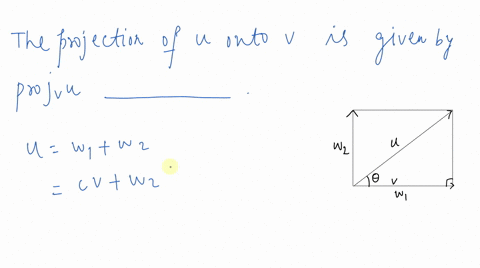 The projection of u onto v is given by
projᵥu __________ .
u = w₁ + w₂
= cv + w₂
w₂
u
θ
v
w₁